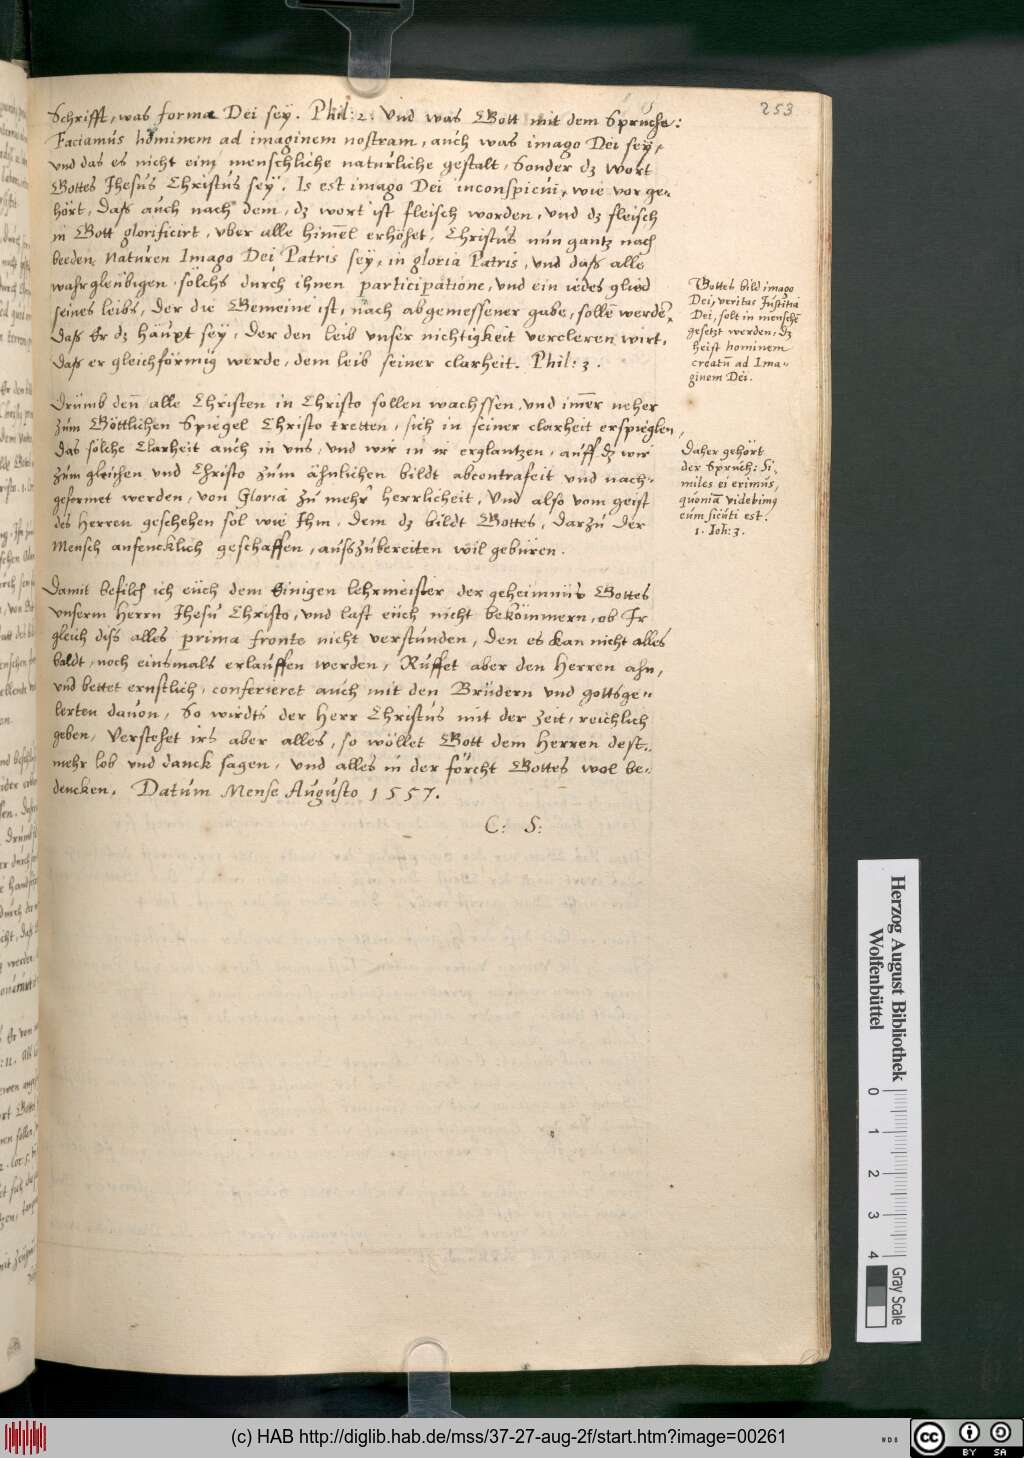 253
Schrifft, was forma Dei seÿ. Phil: 2. Vnd was Gott mit dem Spruche:
Faciamus hominem ad imaginem nostram, auch was imago Dei seÿ,
vnd das es nicht eim menschliche naturliche gestalt, Sonder dz wort
Gottes Jhesus Christus seÿ. Is est imago Dei inconspicui, wie vor ge-
hört, Daß auch nach dem, dz wort ist fleisch worden, vnd dz fleisch
in Gott glorificirt, vber alle himel erhöhet, Christus nun gantz nach
beeden Naturen Imago Dei Patris seÿ, in gloria Patris, vnd daß alle
wahrgleubigen solchs durch ihnen participatione, vnd ein iedes glied
seines leibs, der die Gemeine ist, nach abgemessener gabe, solle werdē,
Daß Er dz häupt seÿ, der den leib vnser nichtigkeit vercleren wirt,
daß er gleichförmig werde, dem leib seiner clarheit. Phil: 3.
Drumb deñ alle Christen in Christo sollen wachssen, vnd imer neher
zum Göttlichen Spiegel Christo tretten, sich in seiner clarheit erspieglen,
das solche Clarheit auch in vns, vnd wir in ir erglantzen, auff dz wir
zum gleichen vnd Christo zum ähnlichen bildt abcontrafeit vnd nach-
geformet werden, von Gloria zu mehr herrlicheit, Vnd also vom geist
des Herren geschehen sol wie Jhm, dem dz bildt Gottes, darzu der
Mensch anfencklich geschaffen, außzubereiten wil geburen.
Damit befilch ich euch dem Einigen lehrmeister der geheimnus Gottes
vnserm Herrn Jhesu Christo, vnd last euch nicht bekömmern, ob Ir
gleich diss alles prima fronte nicht verstunden, den es kan nicht alles
baldt, noch einsmals erlauffen werden, Ruffet aber den Herren ahn,
vnd bettet ernstlich, conferieret auch mit den Brüdern vnd gottsge-
lerten dauon, So wirdts der Herr Christus mit der zeit, reichlich
geben, Verstehet irs aber alles, so wöllet Gott dem Herren dest-
mehr lob vnd danck sagen, vnd alles in der forcht Gottes wol be-
dencken. Datum Mense Augusto 1557.
C: S:
Gottes bild imago
Dei, veritas Justitia
Dei, solt in mensche
gesetzt werden, dz
heist hominem
creatū ad Ima-
ginem Dei.
Daher gehört
der Spruch: Si-
miles ei erimus,
quoniā videbimꝰ
eum sicuti est.
1. Joh: 3.
Herzog August Bibliothek
Wolfenbüttel
0 1 2 3 4
Gray Scale
(c) HAB http://diglib.hab.de/mss/37-27-aug-2f/start.htm?image=00261
WDB
cc BY SA